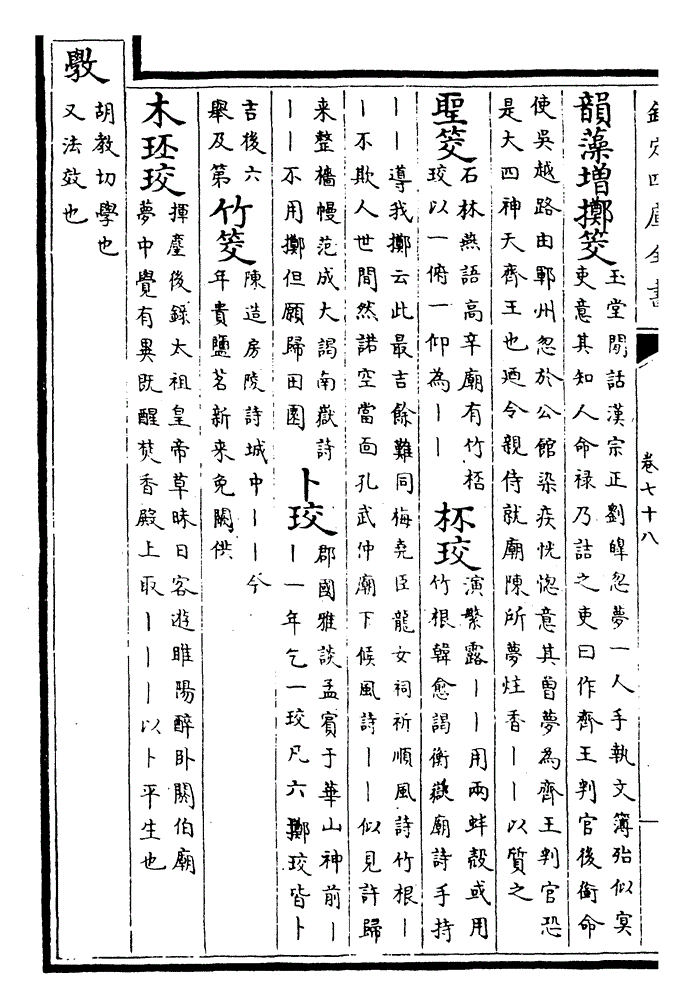 欽定四庫全書
卷七十八
韻藻增擲筊
玉堂閒話漢宗正劉皥忽夢一人手執文簿殆似冥
吏意其知人命禄乃詰之吏曰作齊王判官後銜命
使吳越路由鄆州忽於公館染疾恍惚意其曽夢為齊王判官恐
是大四神天齊王也廼令親侍就廟陳所夢炷香丨丨以質之
聖筊
石林燕語高辛廟有竹桮
珓以一俯一仰為丨丨
杯珓
演繁露丨丨用兩蚌殼或用
竹根韓愈謁衡嶽廟詩手持
丨丨導我擲云此最吉餘難同梅堯臣龍女祠祈順風詩竹根丨
丨不欺人世間然諾空當面孔武仲廟下候風詩丨丨似見許歸
来整檣幔范成大謁南嶽詩
丨丨不用擲但願歸田園
卜珓
郡國雅談孟賓于華山神前丨
丨一年乞一珓凡六擲珓皆卜
吉後六
舉及第
竹筊
陳造房陵詩城中丨丨今
年貴鹽茗新来免闕供
木环珓
揮麈後錄太祖皇帝草昧日客遊睢陽醉卧闕伯廟
夢中覺有異既醒焚香殿上取丨丨丨以卜平生也
斆
胡教切學也
又法效也